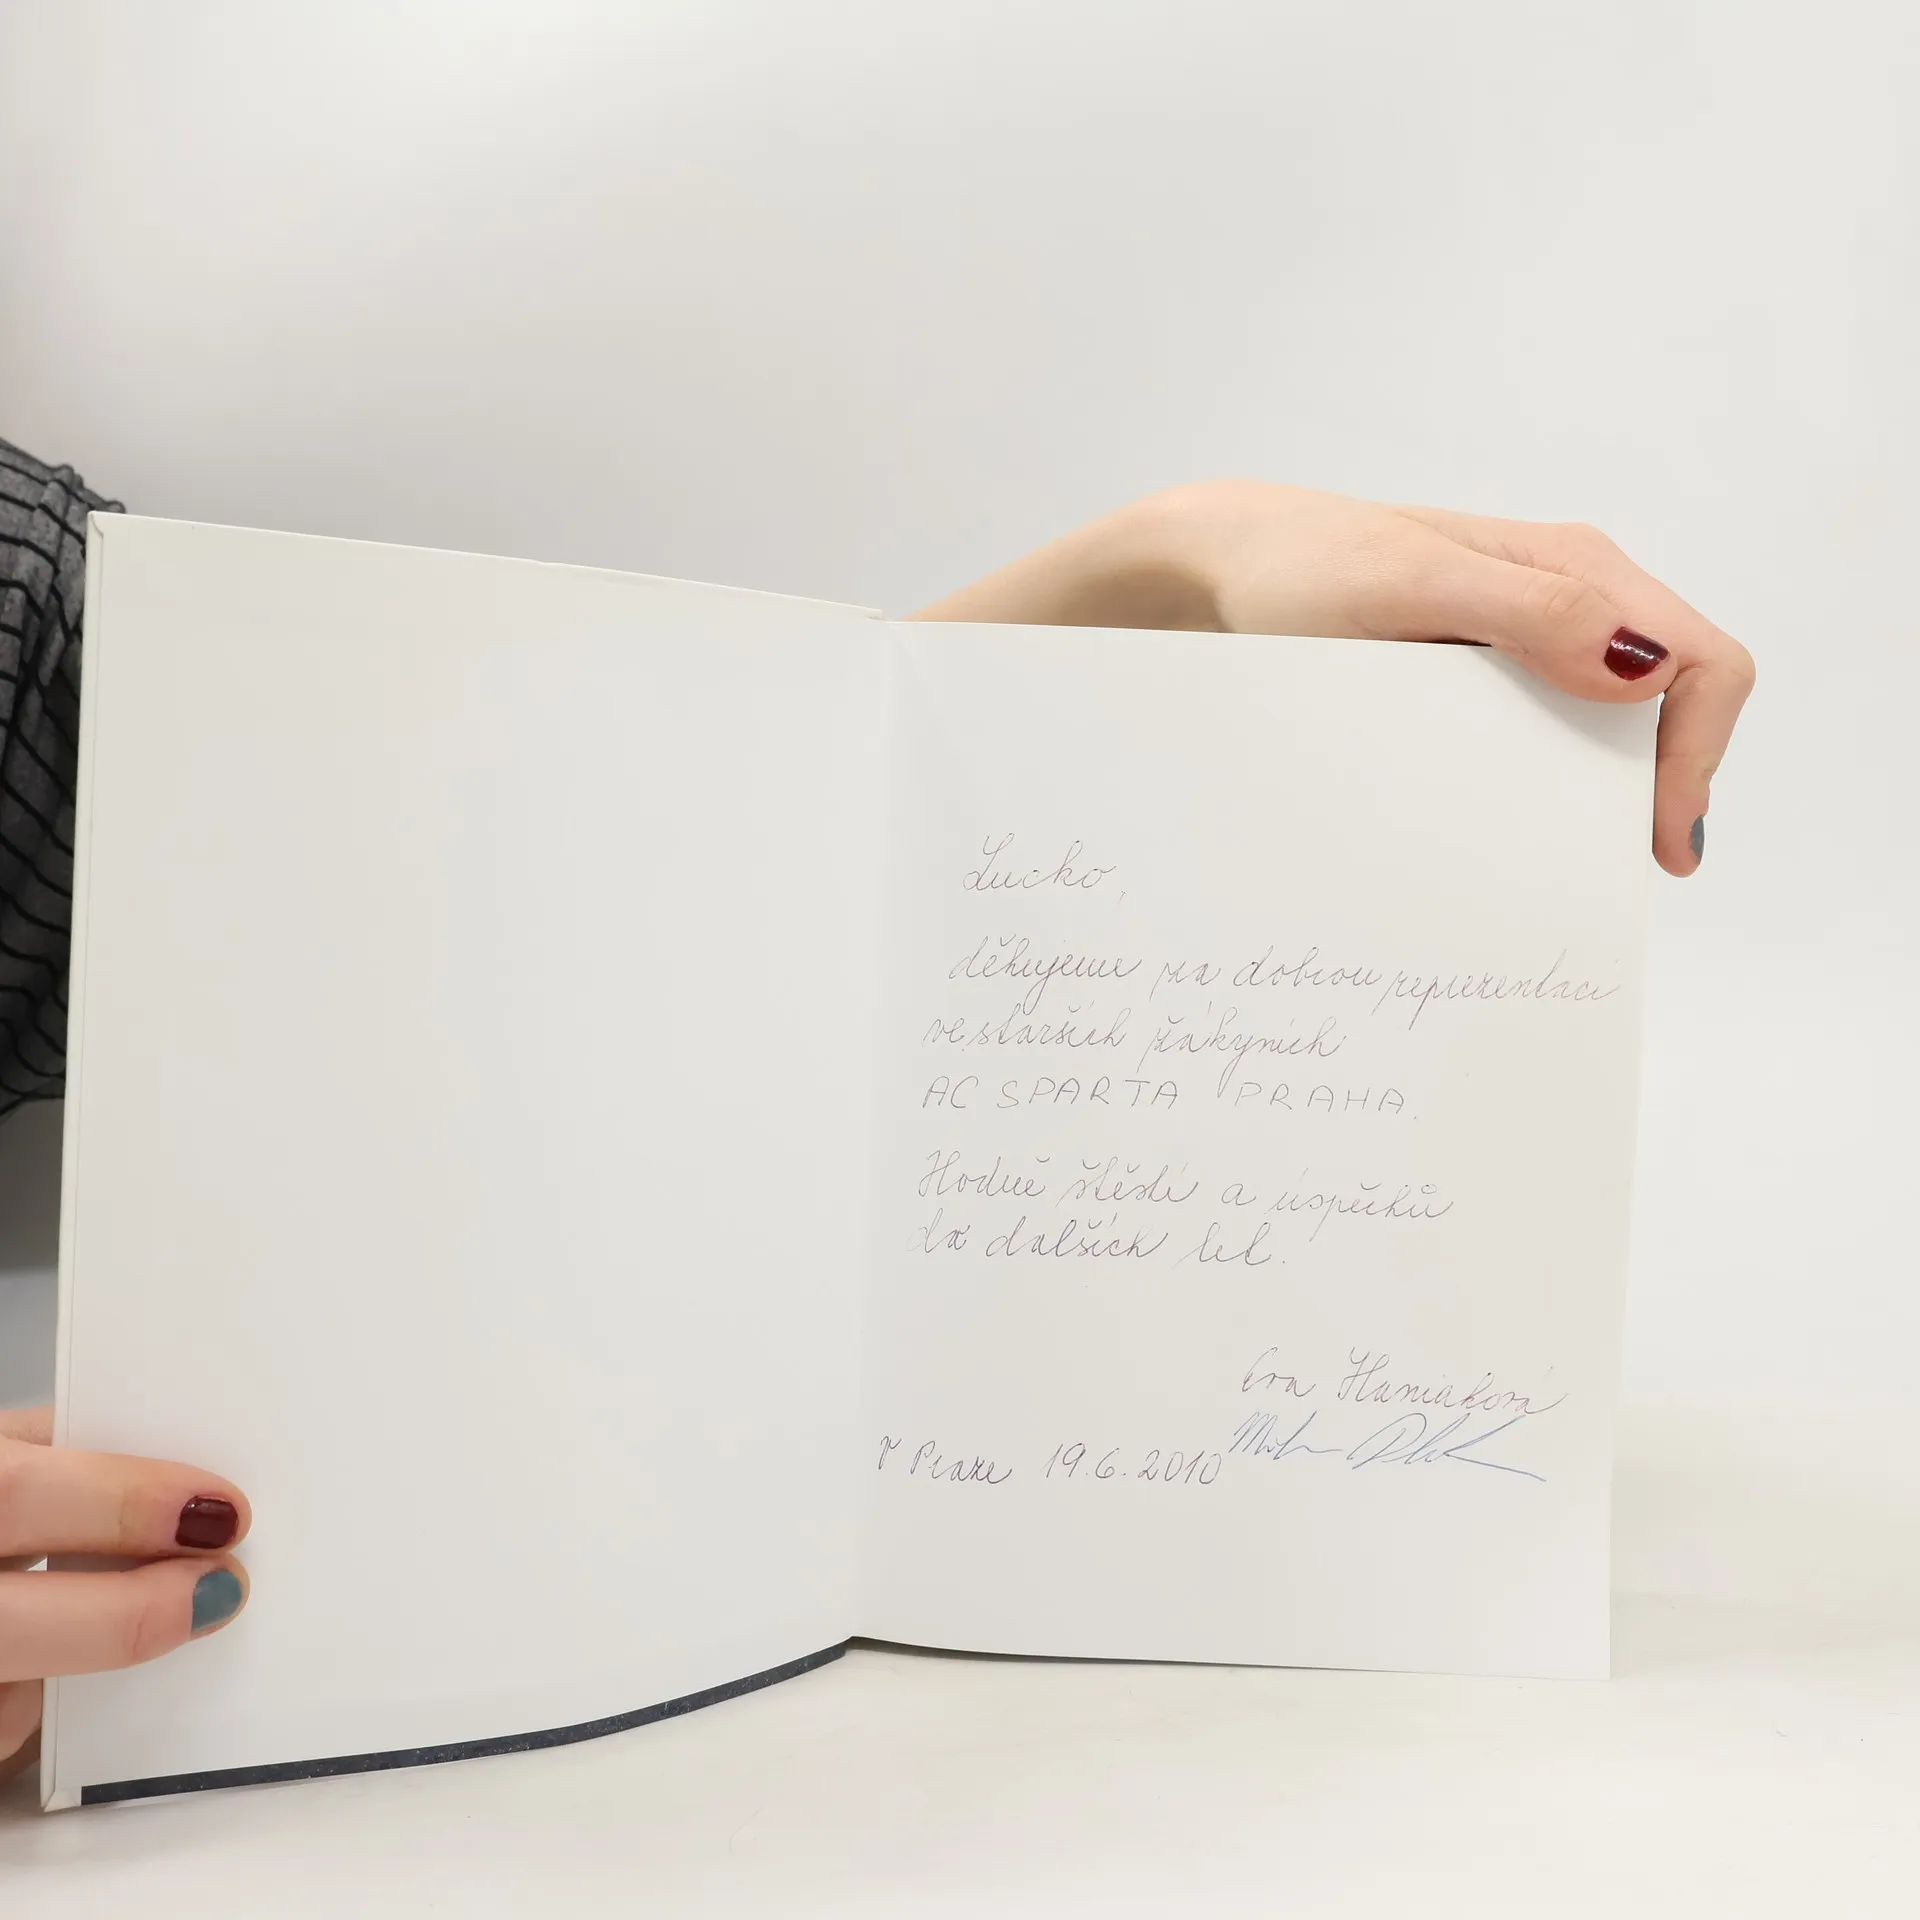 Lucko,
děkujeme za dobrou reprezentaci
ve starších žákyních
AC SPARTA PRAHA.
Hodně štěstí a úspěchů
do dalších let.
Eva Haniaková
V Praze 19.6.2010